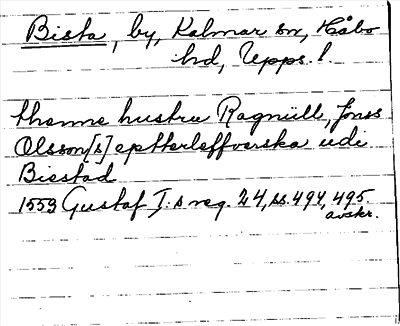 Bista, by, Kalmar sn, Håbo
hd, Upps. l.
thenne hustru Ragnüll, Jonss
Olsson[s] eptterleffverska udi
Biestad
1553 Gustaf I:s reg. 24, ss. 494, 495.
avskr.